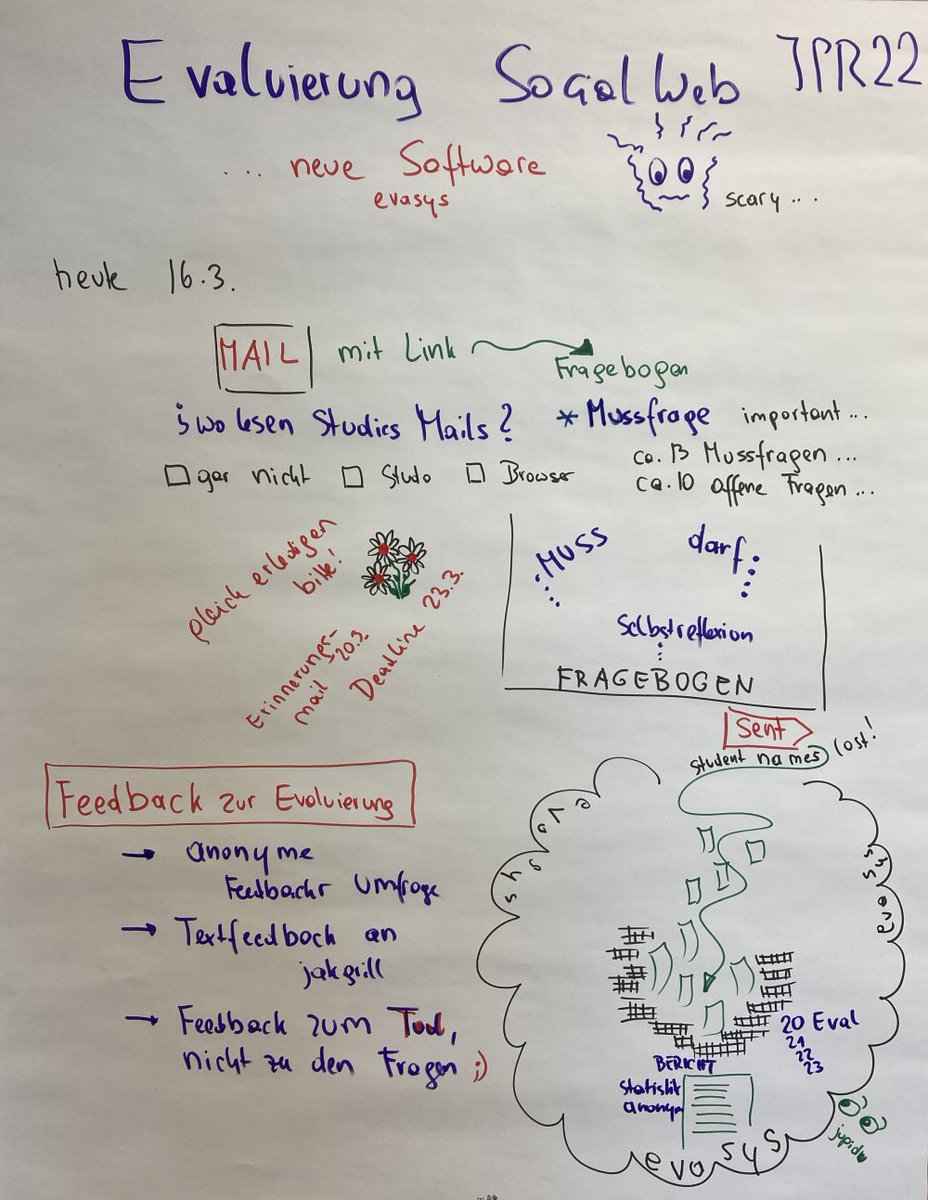 Evaluierung Social Web JPR22
... neue Software
evasys
scary ...
heute 16.3.
MAIL mit Link
Fragebogen
¿wo lesen Studies Mails?
* Mussfrage important ...
ca. 13 Mussfragen ...
ca. 10 offene Fragen ...
gar nicht Studo Browser
gleich erledigen
bitte!
Erinnerungs-
mail 20.3.
Deadline 23.3.
Muss darf
Selbstreflexion
FRAGEBOGEN
Sent
student names lost!
Feedback zur Evaluierung
→ anonyme
Feedback Umfrage
→ Textfeedback an
jakgrill
→ Feedback zum Tool,
nicht zu den Fragen ;)
evasys
evasys
20 Eval
21
22
23
BERICHT
Statistik
anonym
evasys